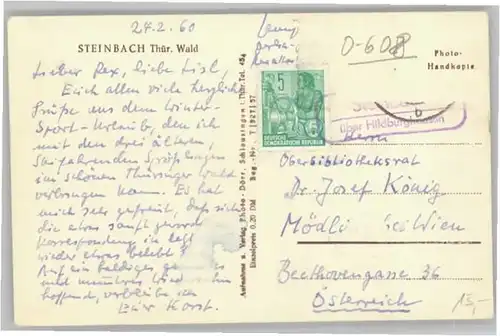 24.2.60
STEINBACH Thür. Wald
Lieber Rex, liebe Lisl,
Euch allen viele herzliche
Grüße aus dem Winter-
Sport-Urlaub, den ich
mit den drei älteren,
Skifahrenden Sprösslingen
im schönen Thüringer Wald
verbringen kann. Es hat
mich sehr gefreut, daß sich
die etwas sanft
Korrespondenz in letzt
wieder etwas belebt!
Auf ein baldiges
und munteres
hoffend, verbleibe ich
Euer Horst.
Aufnahme u. Verlag Photo-Dörr, Schleusingen / Thür. Tel. 454
Einzelpreis 0.20 DM Reg.-Nr. T/927/57
0-608
Photo-
Handkopie
5
DEUTSCHE
DEMOKRATISCHE REPUBLIK
über Hildburghausen
b
Herrn
Oberbibliotheksrat
Dr. Josef König
Mödling bei Wien
Beethovengasse 36
Österreich
15,-